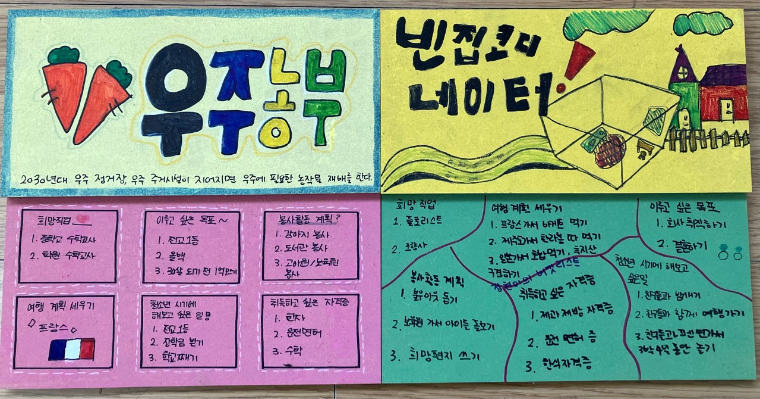 우주농부
2030년대 우주 정거장, 우주 주거시설이 지어지면 우주에 필요한 농작물 재배를 한다.
빈집코디
네이터!
희망직업
1. 중학교 수학교사
2. 학원 수학교사
이루고 싶은 목표~
1. 전교 1등
2. 올백
봉사활동 계획?
1. 강아지 봉사
2. 도서관 봉사
3. 고아원/노인원
봉사
여행 계획 세우기
프랑스
청소년 시기에
해보고 싶은 일
1. 전교 1등
2. 장학금 받기
3. 학교째기
취득하고 싶은 자격증
1. 한자
2. 운전면허
3. 수학
희망직업
1. 플로리스트
2.
여행 계획 세우기
1. 프랑스가서 바게트 먹기
2. 제주도가서 한라봉 따 먹기
3.
구경하기
이루고 싶은 목표
1. 회사 취직하기
2. 결혼하기
버킷리스트
봉사활동 계획
1.
2. 가서 아이들 돌보기
3. 희망편지 쓰기
취득하고 싶은 자격증
1. 제과 제빵 자격증
2. 운전 면허 증
3. 한식자격증
청소년 시기에 해보고
싶은일
1. 친구들과
2. 친구들과 함께 여행가기
3. 친구들과
놀기